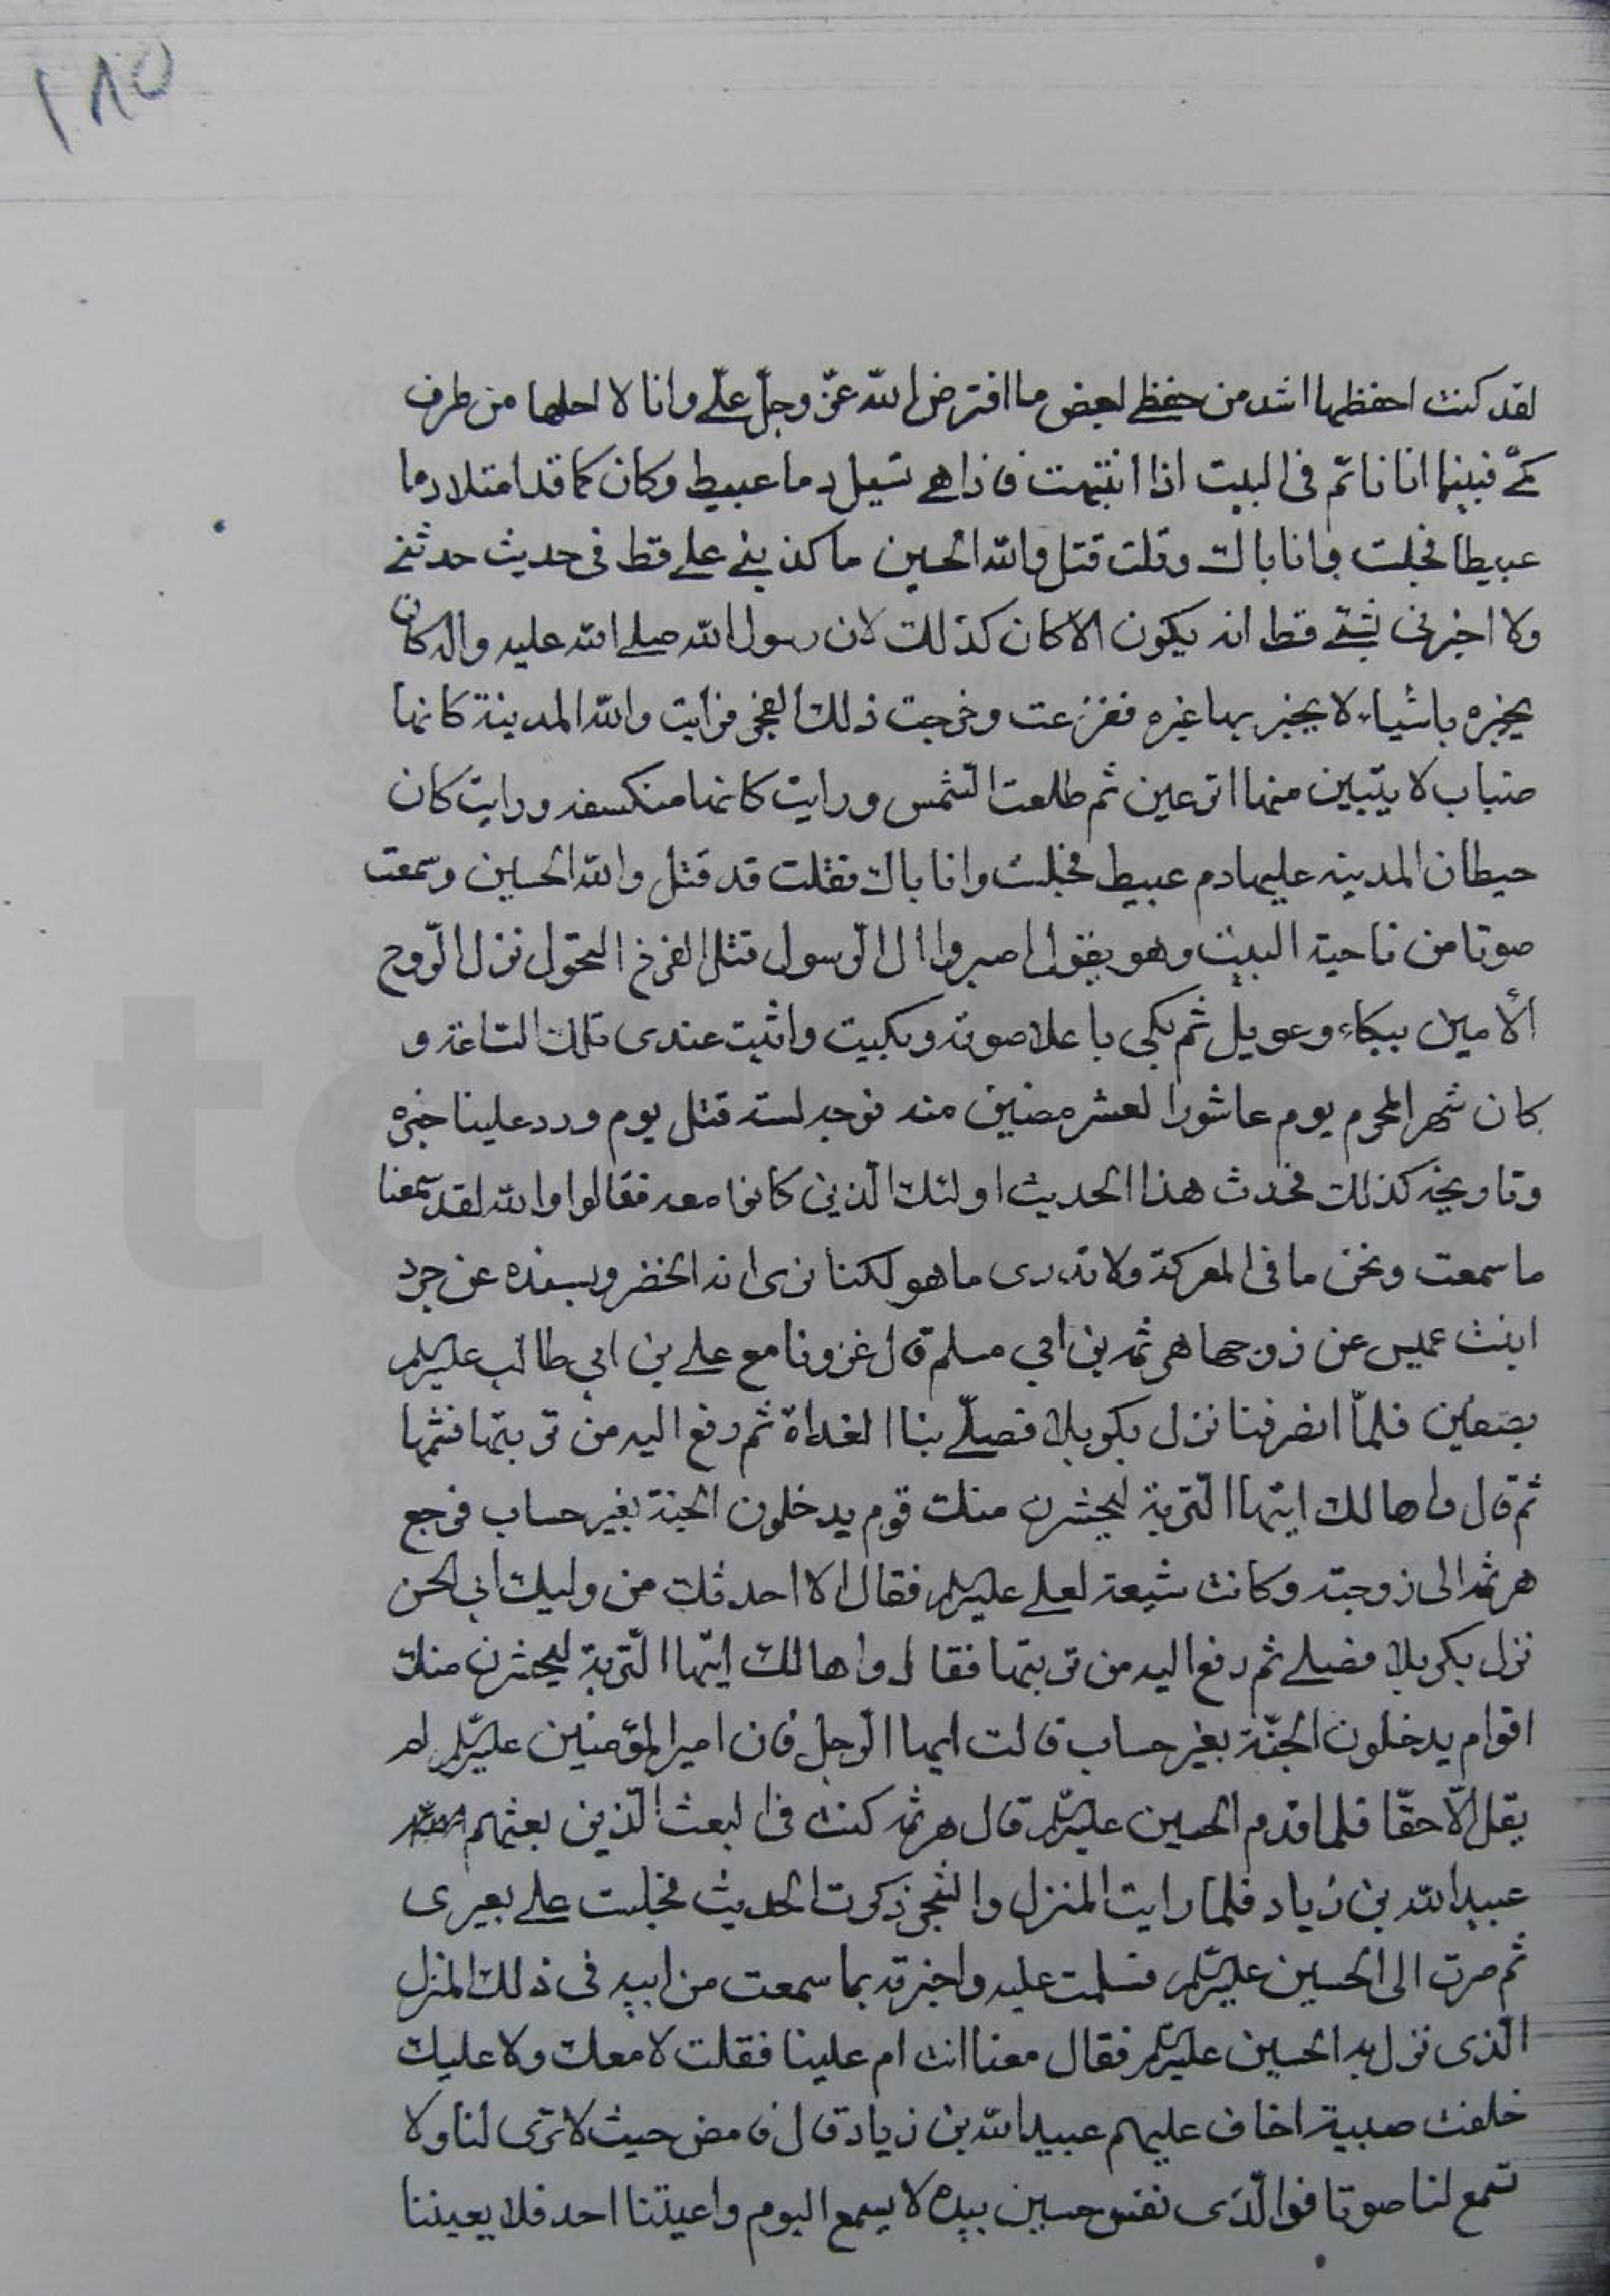 ١٨٥
لقد كنت احفظها اشد من حفظے لبعض ما افترض اللّه عزّ وجلّ علّے وانا لا احلها من طرف
كمّے فبينما انا نائم فى البيت اذا انتبهت فاذا هے تسيل دما عبيط وكان كما قد امتلا دما
عبيطا فجلت وانا باك وقلت قتل واللّه الحسين ما كذبنے علے قط فى حديث حدثنے
ولا اخبرنى بشئے قط انه يكون الّا كان كذلك لان رسول اللّه صلے اللّه عليه واله كان
يخبره باشياء لا يخبر بها غيره ففزعت وخرجت ذلك الفجر فرايت واللّه المدينة كانها
ضباب لا يتبين منها اثر عين ثم طلعت الشّمس ورايت كانها منكسفه ورايت كان
حيطان المدينه عليها دم عبيط فجلت وانا باك فقلت قد قتل واللّه الحسين وسمعت
صوتا من ناحية البيت وهو يقول اصبروا ال الرّسول قتل الفرخ النحول نزل الرّوح
الأمين ببكاء وعويل ثم بكى باعلا صوته وبكيت واثبت عندى تلك السّاعة و
كان شهر المحرم يوم عاشورا لعشر مضين منه فوجدته قتل يوم ورد علينا خبره
وتاريخه كذلك فحدث هذا الحديث اولئك الّذين كانوا معه فقالوا واللّه لقد سمعنا
ما سمعت ونحن ما فى المعركة ولا تدرى ما هو لكنا نرى انه الخضر وبسنده عن جرد
ابنت عميس عن زوجها هرثمه بن ابي مسلم قال غزونا مع علے بن ابي طالب عليه السلم
بصفين فلمّا انصرفنا نزل بكربلا فصلّے بنا الغداة ثم رفع اليه من تربتها فشمها
ثم قال واها لك ايتها التّربة ليحشرن منك قوم يدخلون الجنة بغير حساب فرجع
هرثمه الى زوجته وكانت شيعة لعلے عليه السلم فقال الا احدثك من وليك ابي الحسن
نزل بكربلا فصلے ثم رفع اليه من تربتها فقال واها لك ايّتها التّربة ليحشرن منك
اقوام يدخلون الجنّة بغير حساب قالت ايها الرّجل فان امير المؤمنين عليه السلم لم
يقل الّا حقّا فلما قدم الحسين عليه السلم قال هرثمه كنت فى البعث الّذين بعثهم
عبيد اللّه بن زياد فلما رايت المنزل والشجر ذكرت الحديث فجلت علے بعيرى
ثم صرت الى الحسين عليه السلم فسلمت عليه واخبرته بما سمعت من ابيه فى ذلك المنزل
الّذى نزل به الحسين عليه السلم فقال معنا انت ام علينا فقلت لا معك ولا عليك
خلفت صبية اخاف عليهم عبيد اللّه بن زياد قال فامض حيث لا ترى لنا ولا
تسمع لنا صوتا فوالّذى نفس حسين بيده لا يسمع اليوم واعيتنا احد فلا يعيننا